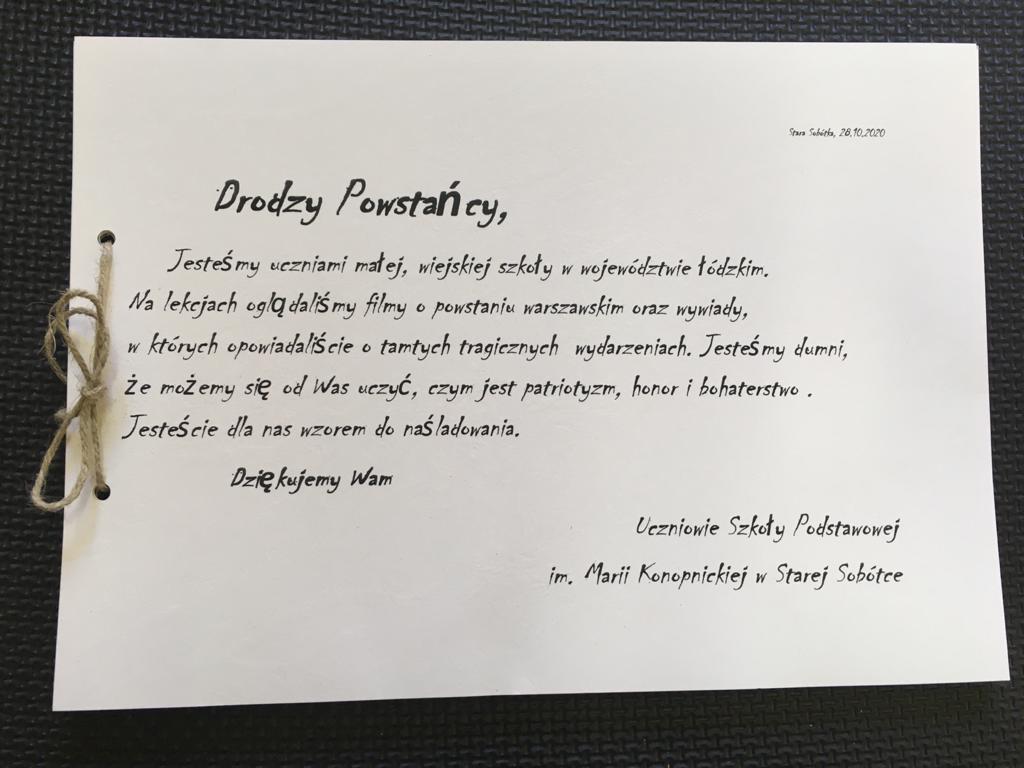 Stara Sobótka, 28.10.2020
Drodzy Powstańcy,
Jesteśmy uczniami małej, wiejskiej szkoły w województwie łódzkim.
Na lekcjach oglądaliśmy filmy o powstaniu warszawskim oraz wywiady,
w których opowiadaliście o tamtych tragicznych wydarzeniach. Jesteśmy dumni,
że możemy się od Was uczyć, czym jest patriotyzm, honor i bohaterstwo .
Jesteście dla nas wzorem do naśladowania.
Dziękujemy Wam
Uczniowie Szkoły Podstawowej
im. Marii Konopnickiej w Starej Sobótce